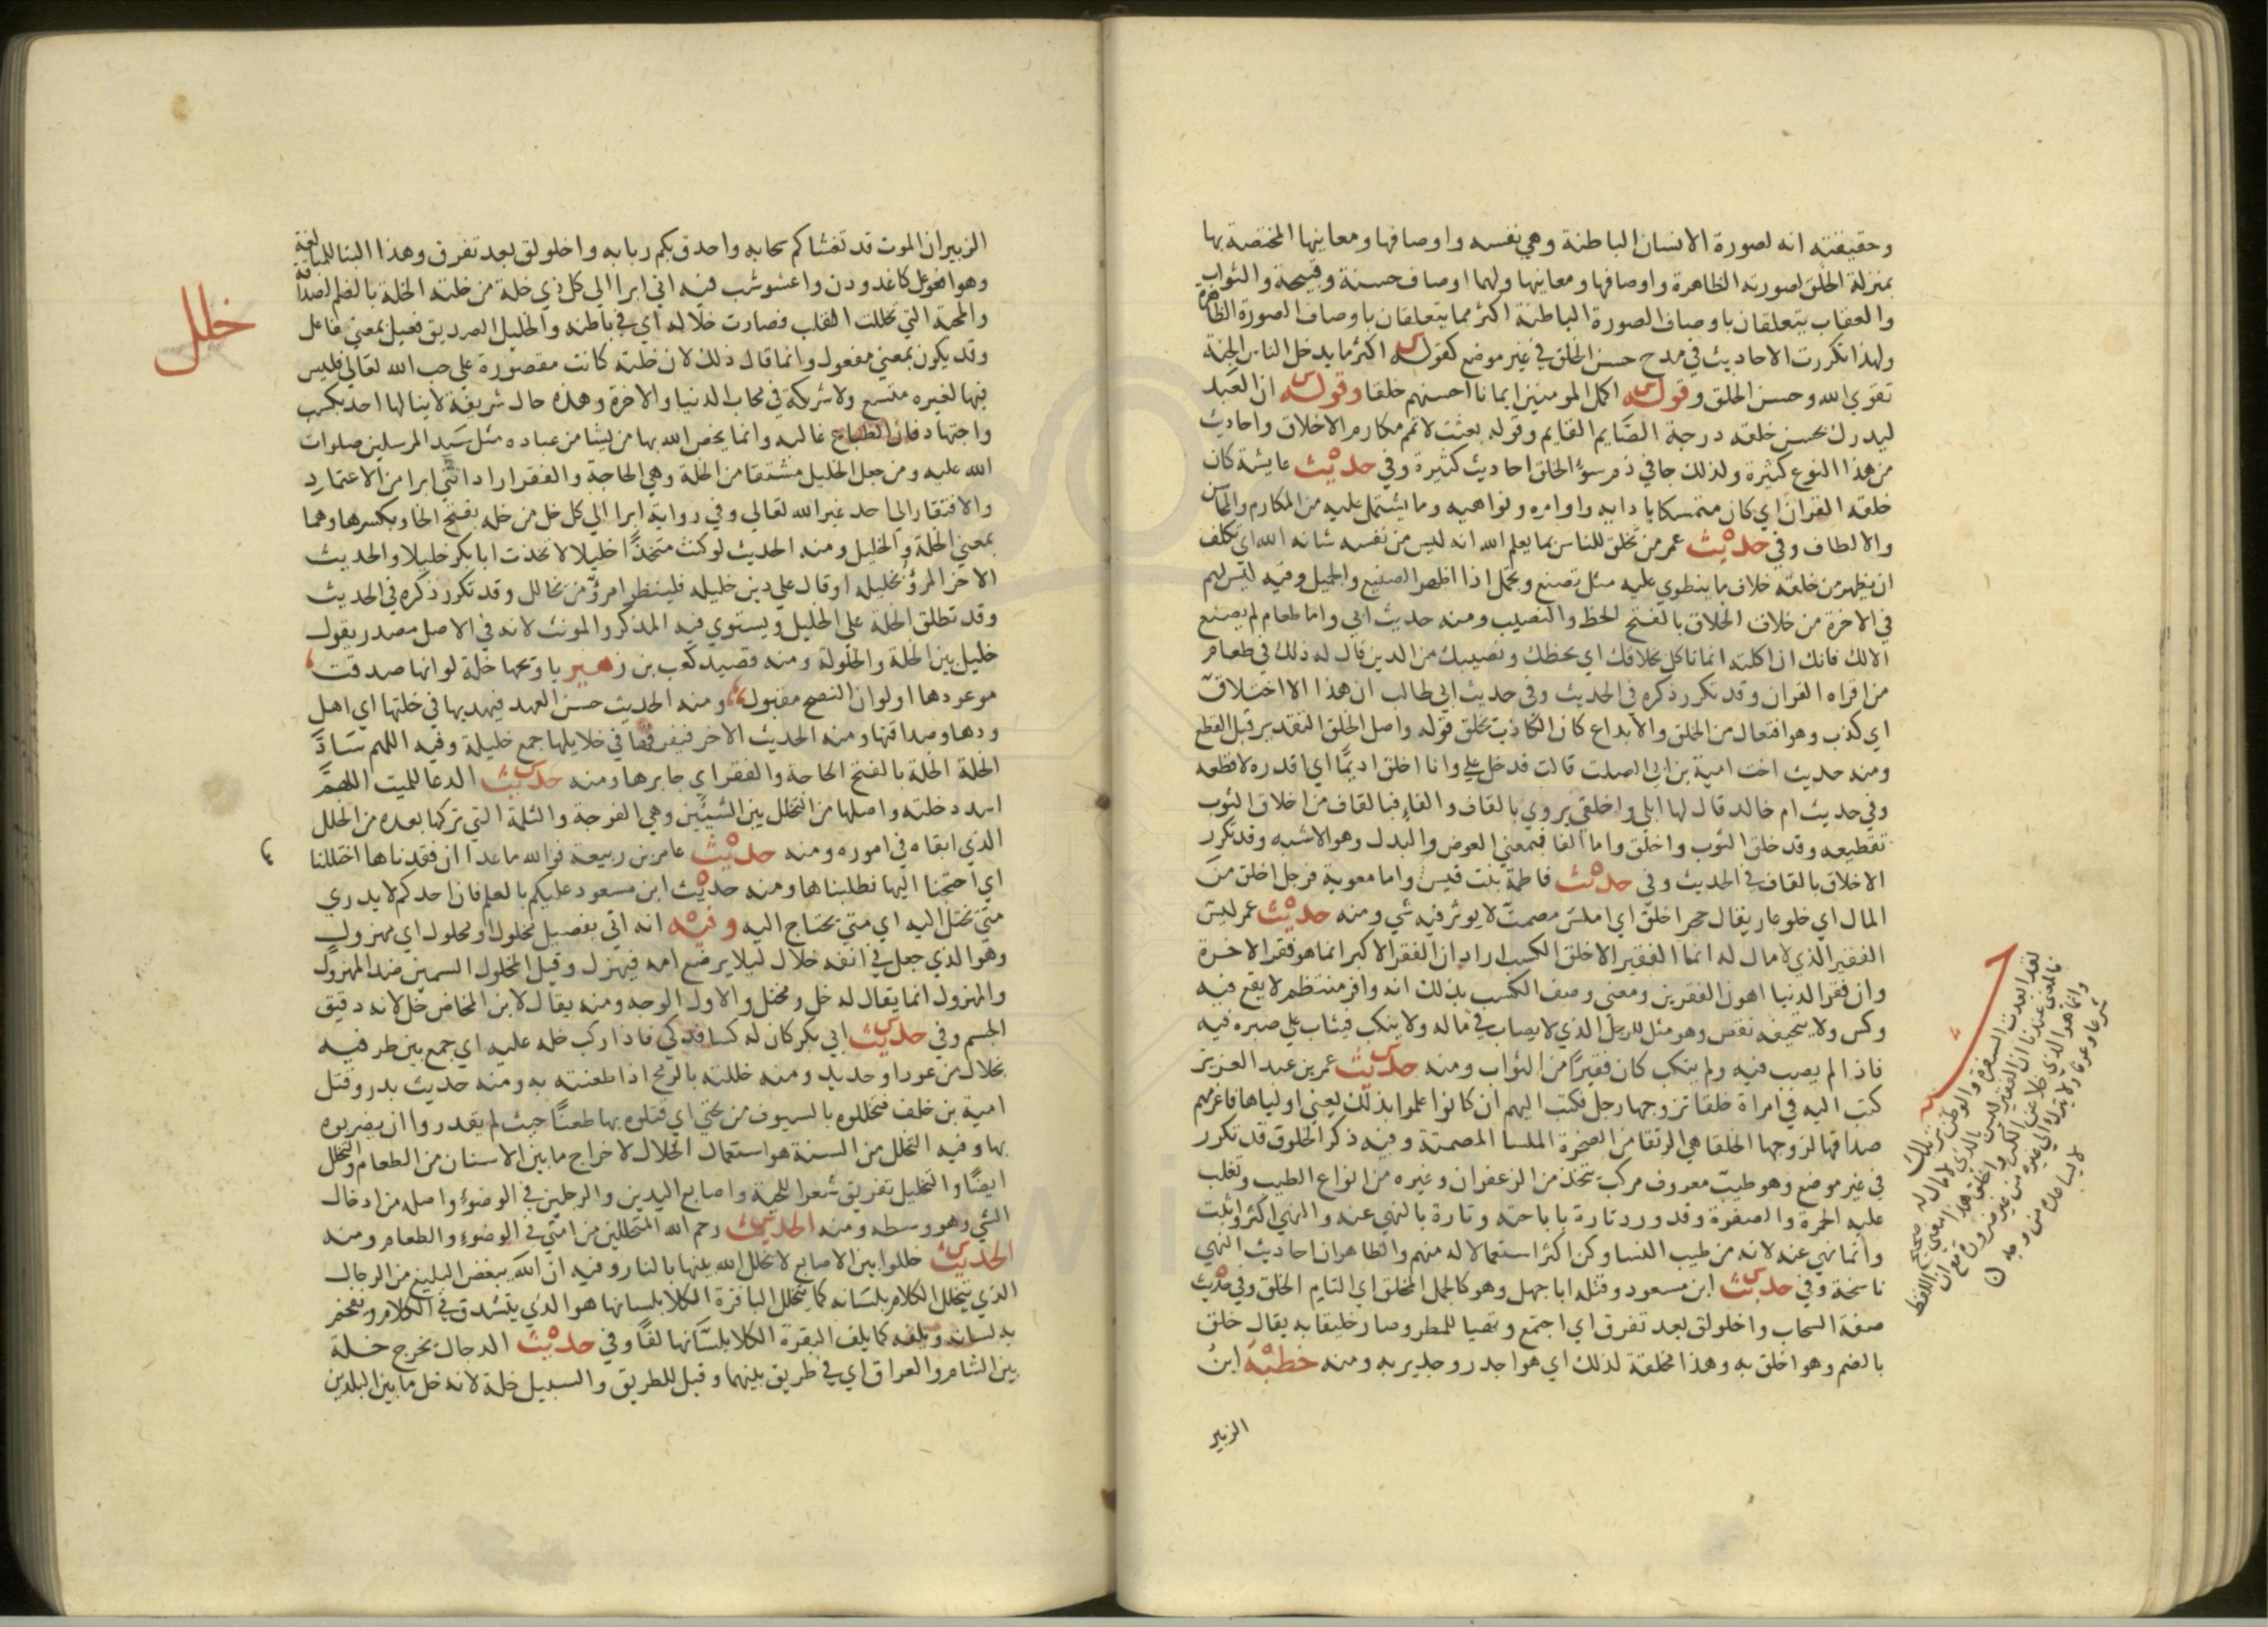 وحقيقته انه لصورة الانسان الباطنة وهي نفسه واوصافها ومعانيها المختصة بها
بمنزلة الخلق لصورته الظاهرة واوصافها ومعانيها ولهما اوصاف حسنة وقبيحة والثواب
والعقاب يتعلقان باوصاف الصورة الباطنة اكثر مما يتعلقان باوصاف الصورة الظاهرة
ولهذا تكررت الاحاديث في مدح حسن الخلق في غير موضع كقوله س اكثر ما يدخل الناس الجنة
تقوي الله وحسن الخلق وقوله س اكمل المومنين ايمانا احسنهم خلقا وقوله س ان العبد
ليدرك بحسن خلقه درجة الصايم القايم وقوله بعثت لاتمم مكارم الاخلاق واحاديث
من هذا النوع كثيرة ولذلك جا في ذم سوء الخلق احاديث كثيرة وفي حديث عايشة كان
خلقه القران اي كان متمسكا بادابه واوامره ونواهيه وما يشتمل عليه من المكارم والمحاسن
والالطاف وفي حديث عمر من تخلق للناس بما يعلم الله انه ليس من نفسه شانه الله اي تكلف
ان يظهر من خلقه خلاف ما ينطوي عليه مثل تصنع وتجمل اذا اظهر الصنيع والجميل وفيه ليس لهم
في الاخرة من خلاق الخلاق بالفتح الحظ والنصيب ومنه حديث ابي واما طعام لم يصنع
الا لك فانك ان اكلته انما تاكل بخلاقك اي بحظك ونصيبك من الدين قال له ذلك في طعام
من اقراه القران وقد تكرر ذكره في الحديث وفي حديث ابي طالب ان هذا الا اختلاق
اي كذب وهو افتعال من الخلق والابداع كان الكاذب تخلق قوله واصل الخلق التقدير قبل القطع
ومنه حديث اخت امية بن ابي الصلت قالت فدخل علي وانا اخلق اديما اي اقدره لاقطعه
وفي حديث ام خالد قال لها ابلي واخلقي يروي بالقاف والفاء فبالقاف من اخلاق الثوب
تقطيعه وقد خلق الثوب واخلق واما الفا فبمعني العوض والبدل وهو الاشبه وقد تكرر
الاخلاق بالقاف في الحديث وفي حديث فاطمة بنت قيس واما معوية فرجل اخلق من
المال اي خلو عار يقال حجر اخلق اي املس مصمت لا يوثر فيه شي ومنه حديث عمر ليس
الفقير الذي لا مال له انما الفقير الاخلق الكسب اراد ان الفقر الاكبر انما هو فقر الاخرة
وان فقر الدنيا اهون الفقرين ومعني وصف الكسب بذلك انه وافر منتظم لا يقع فيه
وكس ولا يتحيفه نقص وهو مثل للرجل الذي لا يصاب في ماله ولا ينكب فيثاب علي صبره فيه
فاذا لم يصب فيه ولم ينكب كان فقيرا من الثواب ومنه حديث عمر بن عبد العزيز
كتب اليه في امراة خلقا تزوجها رجل فكتب اليهم ان كانوا علموا بذلك يعني اولياها فاغرمهم
صداقها لزوجها الخلقا هي الرتقا من الصخرة الملسا المصمتة وفيه ذكر الخلوق قد تكرر
في غير موضع وهو طيب معروف مركب يتخذ من الزعفران وغيره من انواع الطيب وتغلب
عليه الحمرة والصفرة وقد ورد تارة باباحته وتارة بالنهي عنه والنهي اكثر واثبت
وانما نهي عنه لانه من طيب النسا وكن اكثر استعمالا له منهم والظاهر ان احاديث النهي
ناسخة وفي حديث ابن مسعود وقتله ابا جهل وهو كالجمل المخلق اي التام الخلق وفي حديث
صفة السحاب واخلولق بعد تفرق اي اجتمع وتهيا للمطر وصار خليقا به يقال خلق
بالضم وهو اخلق به وهذا مخلقة لذلك اي هو اجدر وجدير به ومنه خطبة ابن
الزبير
الزبير ان الموت قد تغشاكم سحابه واحدق بكم ربابه واخلولق بعد تفرق وهذا البنا للمبالغة
وهو افعوعل كاغدودن واعشوشب فيه اني ابرا الي كل ذي خلة من خلته الخلة بالضم الصداقة
والمحبة التي تخللت القلب فصارت خلاله اي في باطنه والخليل الصديق فعيل بمعني فاعل
وقد يكون بمعني مفعول وانما قال ذلك لان خلته كانت مقصورة علي حب الله تعالي فليس
فيها لغيره متسع ولا شركة في محاب الدنيا والاخرة وهذه حال شريفة لا ينالها احد بكسب
واجتهاد فان الطباع غالبه وانما يخص الله بها من يشا من عباده مثل سيد المرسلين صلوات
الله عليه ومن جعل الخليل مشتقا من الخلة وهي الحاجة والفقر اراد انني ابرا من الاعتماد
والافتقار الي احد غير الله تعالي وفي رواية ابرا الي كل خل من خله بفتح الخا وبكسرها وهما
بمعني الخلة والخليل ومنه الحديث لو كنت متخذا خليلا لاتخذت ابا بكر خليلا والحديث
الاخر المرؤ بخليله او قال علي دين خليله فلينظر امرؤ من تخالل وقد تكرر ذكره في الحديث
وقد تطلق الخلة علي الخليل ويستوي فيه المذكر والمونث لانه في الاصل مصدر يقول
خليل بين الخلة والخلولة ومنه قصيد كعب بن زهير يا ويحها خلة لو انها صدقت
موعودها او لو ان النصح مقبول ومنه الحديث حسن العهد فيهديها في خلتها اي اهل
ودها وصداقتها ومنه الحديث الاخر فيفرقها في خلايلها جمع خليلة وفيه اللهم ساد
الخلة الخلة بالفتح الحاجة والفقر اي جابرها ومنه حديث الدعا للميت اللهم
اسدد خلته واصلها من التخلل بين الشيئين وهي الفرجة والثلمة التي تركها بعده من الخلل
الذي ابقاه في اموره ومنه حديث عامر بن ربيعة فوالله ما عدا ان فقدناها اختللنا
اي احتجنا اليها فطلبناها ومنه حديث ابن مسعود عليكم بالعلم فان احدكم لا يدري
متي تختل اليه اي متي يحتاج اليه وفيه انه اتي بفصيل مخلول او محلول اي مهزول
وهو الذي جعل في انفه خلال ليلا يرضع امه فيهزل وقيل المخلول السمين ضد المهزول
والمهزول انما يقال له خل ومختل والاول الوجه ومنه يقال لابن المخاض خل لانه دقيق
الجسم وفي حديث ابي بكر كان له كسا فدكي فاذا ركب خله عليه اي جمع بين طرفيه
بخلال من عود او حديد ومنه خللته بالرمح اذا طعنته به ومنه حديث بدر وقتل
امية بن خلف فتخللوه بالسيوف من تحتي اي قتلوه بها طعنا حيث لم يقدروا ان يضربوه
بها وفيه التخلل من السنة هو استعمال الخلال لاخراج ما بين الاسنان من الطعام والتخلل
ايضا والتخليل تفريق شعر اللحية واصابع اليدين والرجلين في الوضوء واصله من ادخال
الشي وهو وسطه ومنه الحديث رحم الله المتخللين من امتي في الوضوء والطعام ومنه
الحديث خللوا بين الاصابع لا تخلل الله بينها بالنار وفيه ان الله يبغض البليغ من الرجال
الذي يتخلل الكلام بلسانه كما تتخلل الباقرة الكلا بلسانها هو الذي يتشدق في الكلام ويفخم
به لسانه ويلفه كما يلف البقرة الكلا بلسانها لفا وفي حديث الدجال يخرج خلة
بين الشام والعراق اي في طريق بينهما وقيل للطريق والسبيل خلة لانه خل ما بين البلدين
خلل